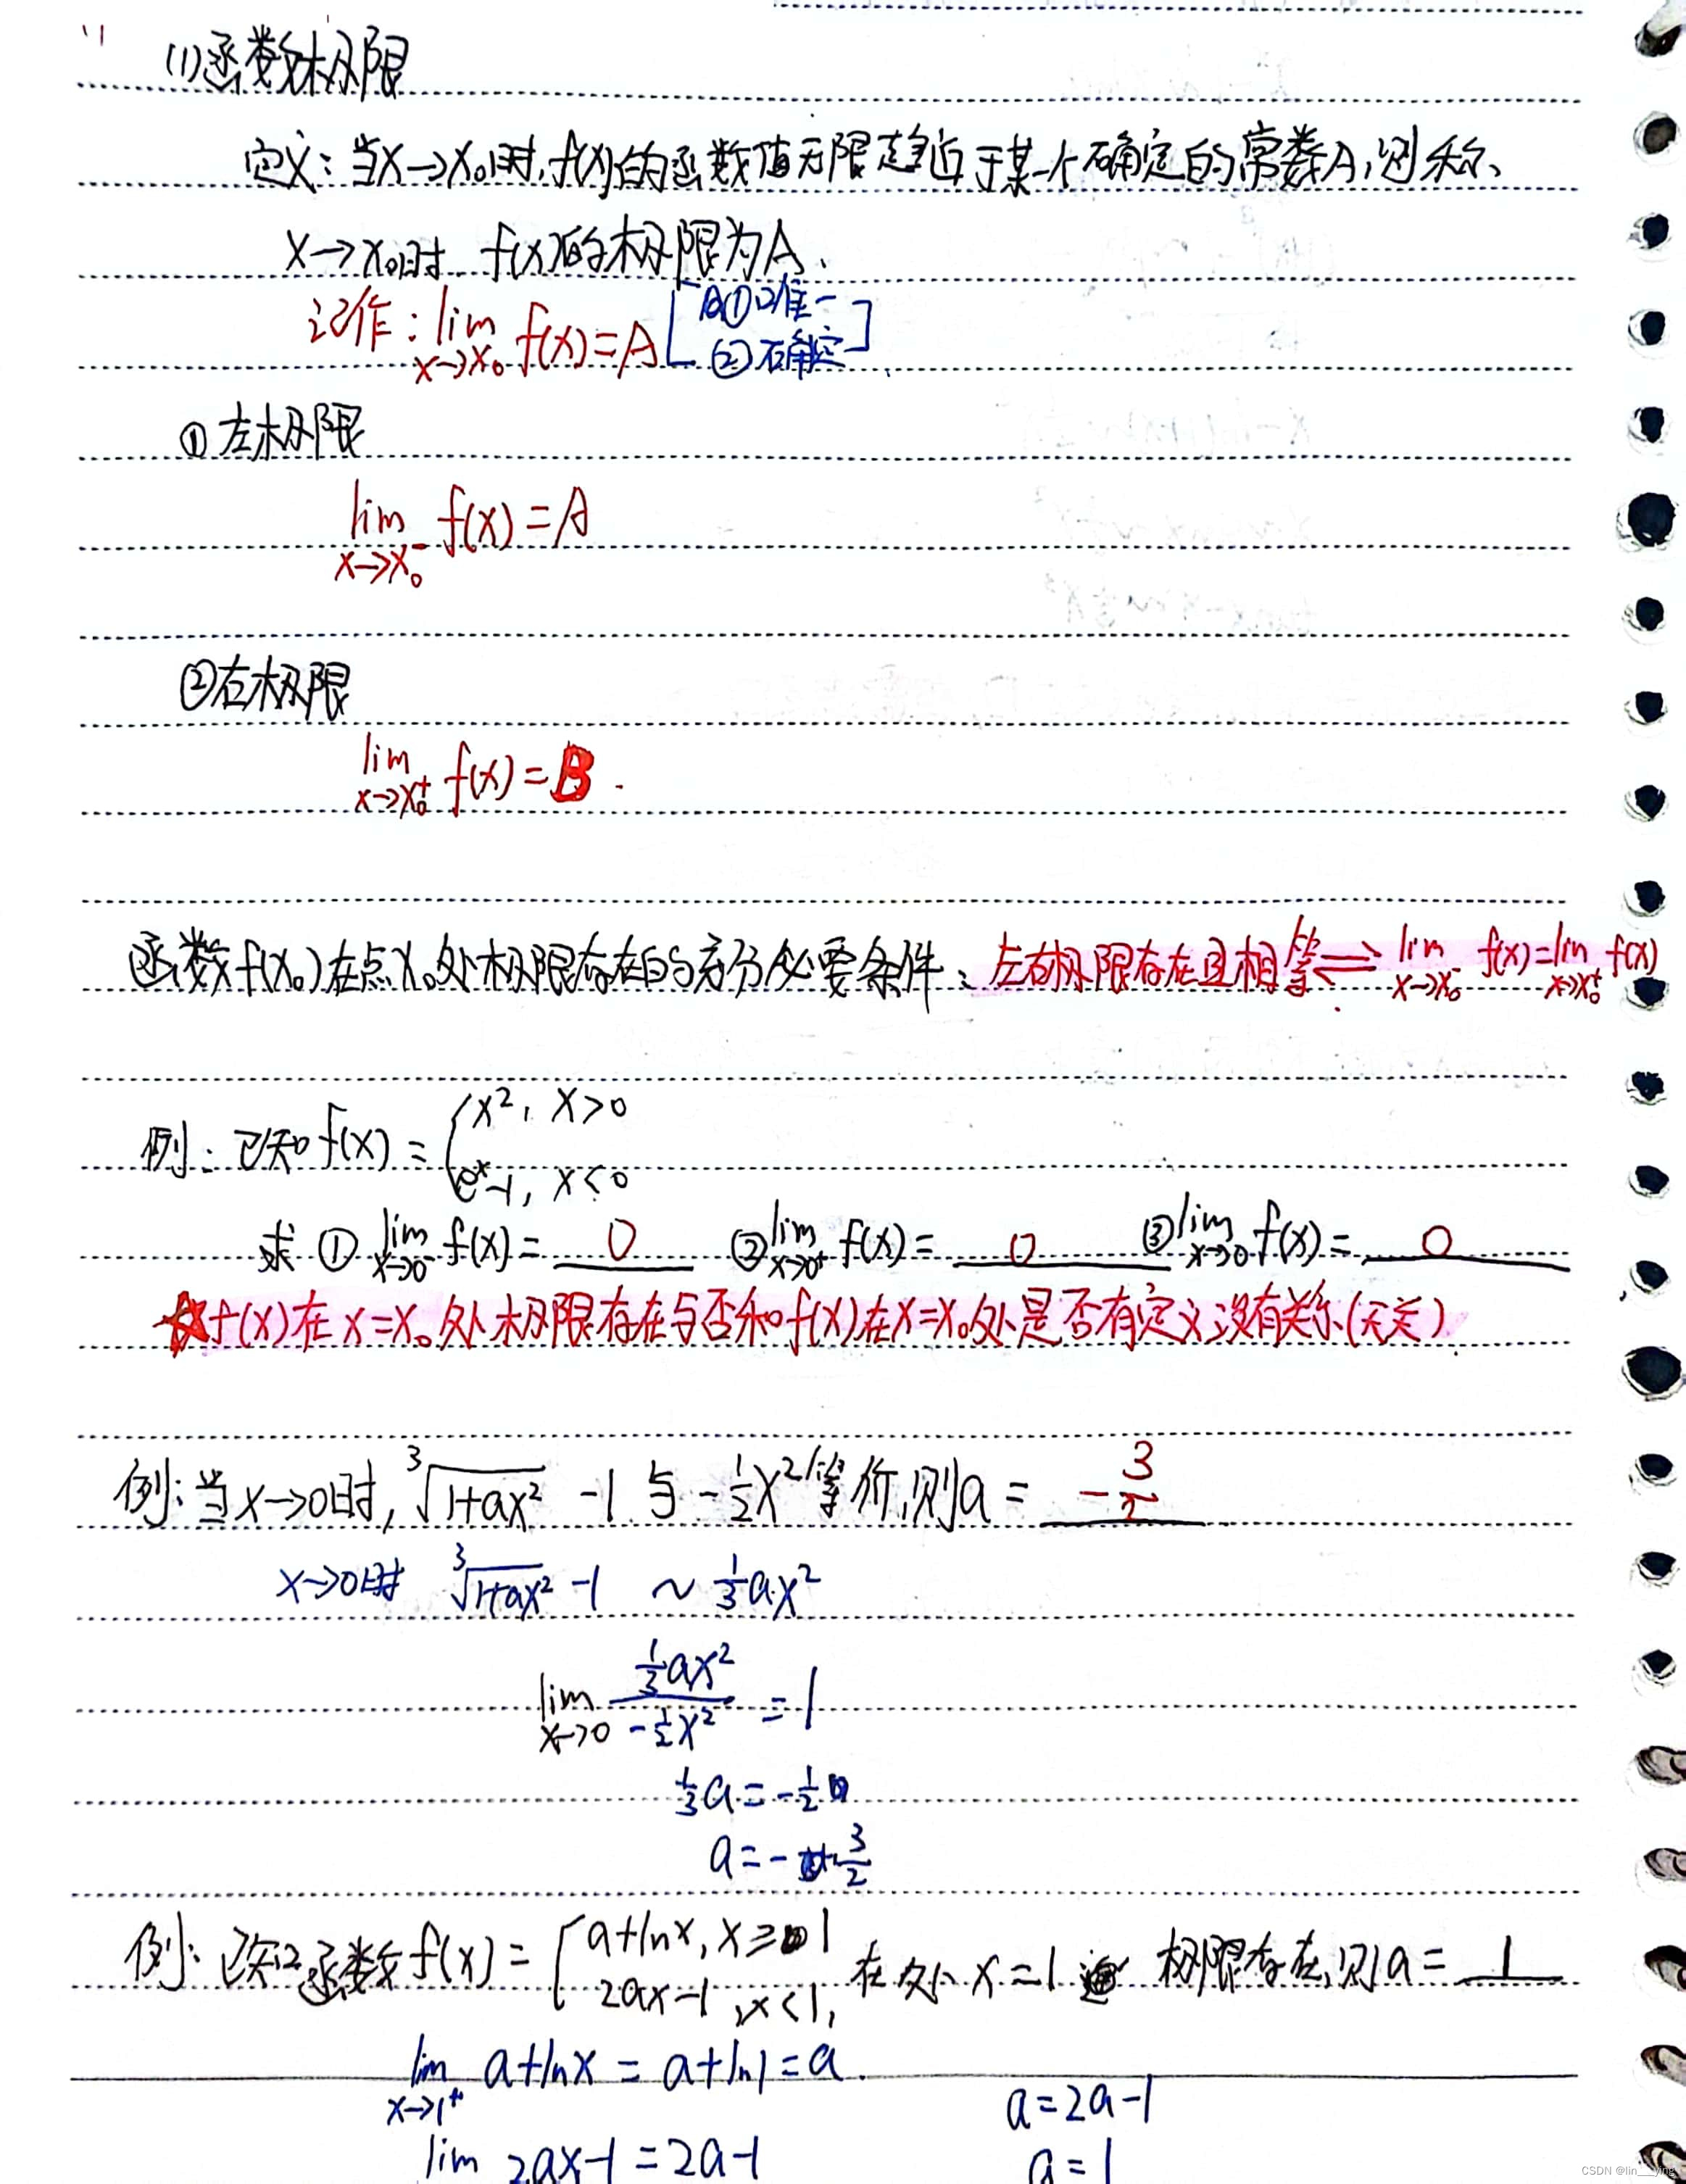 (1)函数极限
定义:当x→x₀时,f(x)的函数值无限趋近于某一个确定的常数A,则称、
x→x₀时 f(x)的极限为A.
记作:lim x→x₀ f(x)=A [A①唯一 ②确定]
①左极限
lim x→x₀⁻ f(x)=A
②右极限
lim x→x₀⁺ f(x)=B.
函数f(x₀)在点x₀处极限存在的充分必要条件:左右极限存在且相等⟺lim x→x₀⁻ f(x)=lim x→x₀⁺ f(x)
例:已知f(x)={x², x>0
eˣ-1, x<0
求 ① lim x→0⁻ f(x)= 0 ② lim x→0⁺ f(x)= 0 ③ lim x→0 f(x)= 0
☆f(x)在x=x₀处极限存在与否和f(x)在x=x₀处是否有定义没有关系(无关)
例:当x→0时,³√(1+ax²) -1 与 -½x²等价,则a= -3/2
x→0时 ³√(1+ax²) -1 ~ ⅓ax²
lim x→0 (⅓ax²)/(-½x²) =1
⅓a=-½
a=-3/2
例:已知函数f(x)={a+lnx, x≥1
2ax-1, x<1, 在处x=1 极限存在,则a= 1
lim x→1⁺ a+lnx=a+ln1=a.
a=2a-1
lim 2ax-1=2a-1
a=1
CSDN @lin__ying